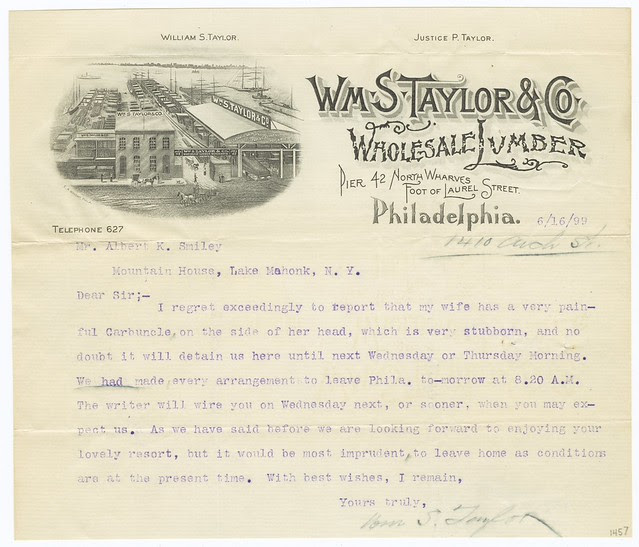 WILLIAM S. TAYLOR. JUSTICE P. TAYLOR.
WM. S. TAYLOR & CO.
WM S. TAYLOR & CO.
WM. S. TAYLOR & CO.
WHOLESALE LUMBER
PIER 42 NORTH WHARVES
FOOT OF LAUREL STREET.
Philadelphia. 6/16/99
TELEPHONE 627
1410 Arch St.
Mr. Albert K. Smiley
Mountain House, Lake Mahonk, N. Y.
Dear Sir;-
I regret exceedingly to report that my wife has a very pain-
ful Carbuncle on the side of her head, which is very stubborn, and no
doubt it will detain us here until next Wednesday or Thursday Morning.
We had made every arrangement to leave Phila. to-morrow at 8.20 A.M.
The writer will wire you on Wednesday next, or sooner, when you may ex-
pect us. As we have said before we are looking forward to enjoying your
lovely resort, but it would be most imprudent to leave home as conditions
are at the present time. With best wishes, I remain,
Yours truly,
Wm S. Taylor
1457